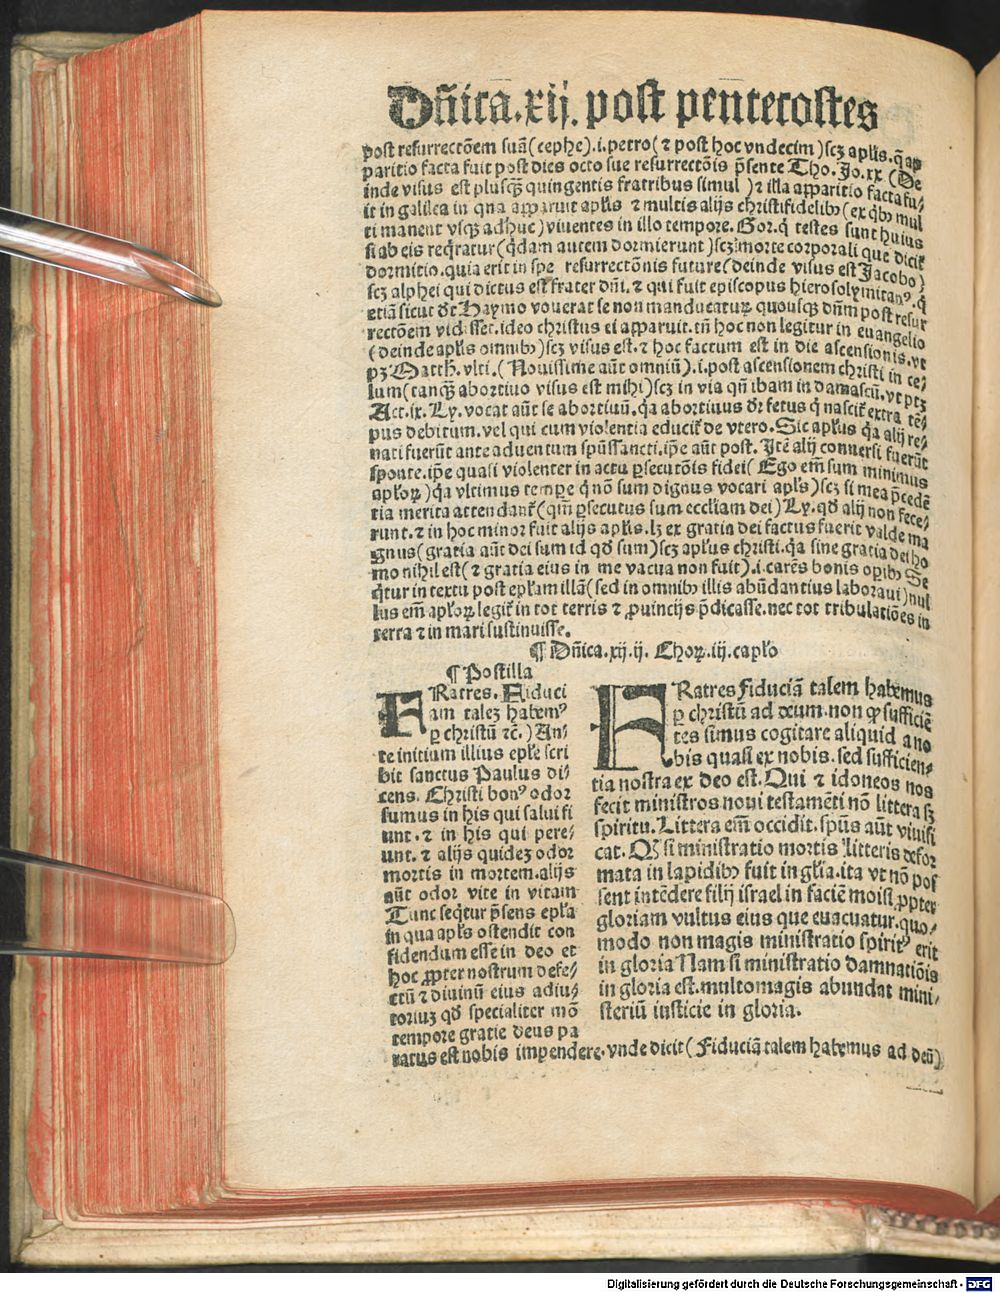 Dñica.xij. post pentecostes
post resurrectõem suã(cephe).i.petro(⁊ post hoc vndecim)scz aplis.q̃ ap
paritio facta fuit post dies octo sue resurrectõis p̃sente Tho. Jo.xx (De
inde visus est plusq̃ quingentis fratribus simul )⁊ illa apparitio facta fu⸗
it in galilea in qua apparuit aplis ⁊ multis alijs christifidelibꝰ (ex q̃bꝰ mul
ti manent vsq̃ adhuc) viuentes in illo tempore. Gor.q̃ testes sunt huius
si ab eis req̃ratur (q̃dam autem dormierunt)scz morte corporali que dicit̃
dormitio.quia erit in spe resurrectõnis future(deinde visus est Jacobo)
scz alphei qui dictus est frater dñi.⁊ qui fuit episcopus hierosolymitanꝰ.q̃
etiã sicut dr̃ Haymo vouerat se non manducaturꝝ quousq̃ dñm post resur
rectõem vidisset.ideo christus ei apparuit.tñ hoc non legitur in euangelio
(deinde aplis omnibꝰ)scz visus est.⁊ hoc factum est in die ascensionis.vt
pꝫ Matth. vlti.(Nouissime aũt omniũ).i.post ascensionem christi in ce⸗
lum(tanq̃ abortiuo visus est mihi)scz in via qñ ibam in damascũ.vt ptꝫ
Act.ix.Ly. vocat aũt se abortiuũ.q̃a abortiuus dr̃ fetus q̃ nascit̃ extra tẽ⸗
pus debitum.vel qui cum violentia educit̃ de vtero.Sic aplus q̃a alij re⸗
nati fuerũt ante aduentum spũssancti.ip̃e aũt post. Itẽ alij conuersi fuerũt
sponte.ip̃e quasi violenter in actu p̱secutõis fidei( Ego em̃ sum minimus
aploꝝ)q̃a vltimus tempore q̃ nõ sum dignus vocari apls)scz si mea p̃cedẽ
tia merita attendant̃ (qm̃ p̱secutus sum eccliam dei)Ly. qđ alij non fece⸗
runt.⁊ in hoc minor fuit alijs aplis.lꝫ ex gratia dei factus fuerit valde ma
gnus(gratia aũt dei sum id qđ sum)scz aplus christi.q̃a sine gratia dei ho
mo nihil est(⁊ gratia eius in me vacua non fuit).i.carẽs bonis op̱ibꝰ Se
q̃tur in textu post eplam illã(sed in omnibꝰ illis abũdantius laboraui)nul
lus em̃ aploꝝ legit̃ in tot terris ⁊ ꝓuincijs p̃dicasse.nec tot tribulatiões in
terra ⁊ in mari sustinuisse.
¶ Dñica.xij.ij. Choꝝ.iij.caplo
¶ Postilla
FRatres. Fiduci
am talez habemꝰ
p̱ christũ ꝛc.)An⸗
te initium illius eple scri
bit sanctus Paulus di⸗
cens. Christi bonꝰ odor
sumus in his qui salui fi
unt.⁊ in his qui pere⸗
unt.⁊ alijs quidez odor
mortis in mortem.alijs
aũt odor vite in vitam
Tunc seq̃tur p̃sens epla
in qua apls ostendit con
fidendum esse in deo et
hoc ꝓpter nostrum defe⸗
ctũ ⁊ diuinũ eius adiu⸗
toriuz qđ specialiter mõ
tempore gratie deus pa
ratus est nobis impendere.vnde dicit( Fiduciã talem habemus ad deũ)
FRatres fiduciã talem habemus
p̱ christũ ad deum.non q̃ sufficiẽ
tes simus cogitare aliquid a no
bis quasi ex nobis.sed sufficien⸗
tia nostra ex deo est.Qui ⁊ idoneos nos
fecit ministros noui testamẽti nõ littera sꝫ
spiritu.Littera em̃ occidit.spũs aũt viuifi
cat. Qđ si ministratio mortis litteris defor
mata in lapidibꝰ fuit in glia.ita vt nõ pos
sent intẽdere filij israel in faciẽ moisi ꝓpter
gloriam vultus eius que euacuatur.quo⸗
modo non magis ministratio spiritꝰ erit
in gloria Nam si ministratio damnatiõis
in gloria est.multomagis abundat mini⸗
steriũ iusticie in gloria.
Digitalisierung gefördert durch die Deutsche Forschungsgemeinschaft - DFG